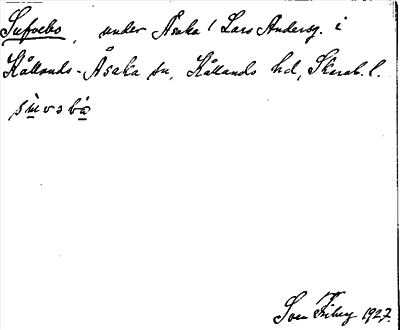 Sufvebo, under Åsaka (Lars Andersg. i
Kållands-Åsaka sn, Kållands hd, Skarab. l.
sùvobå
Sven Friberg 1927.